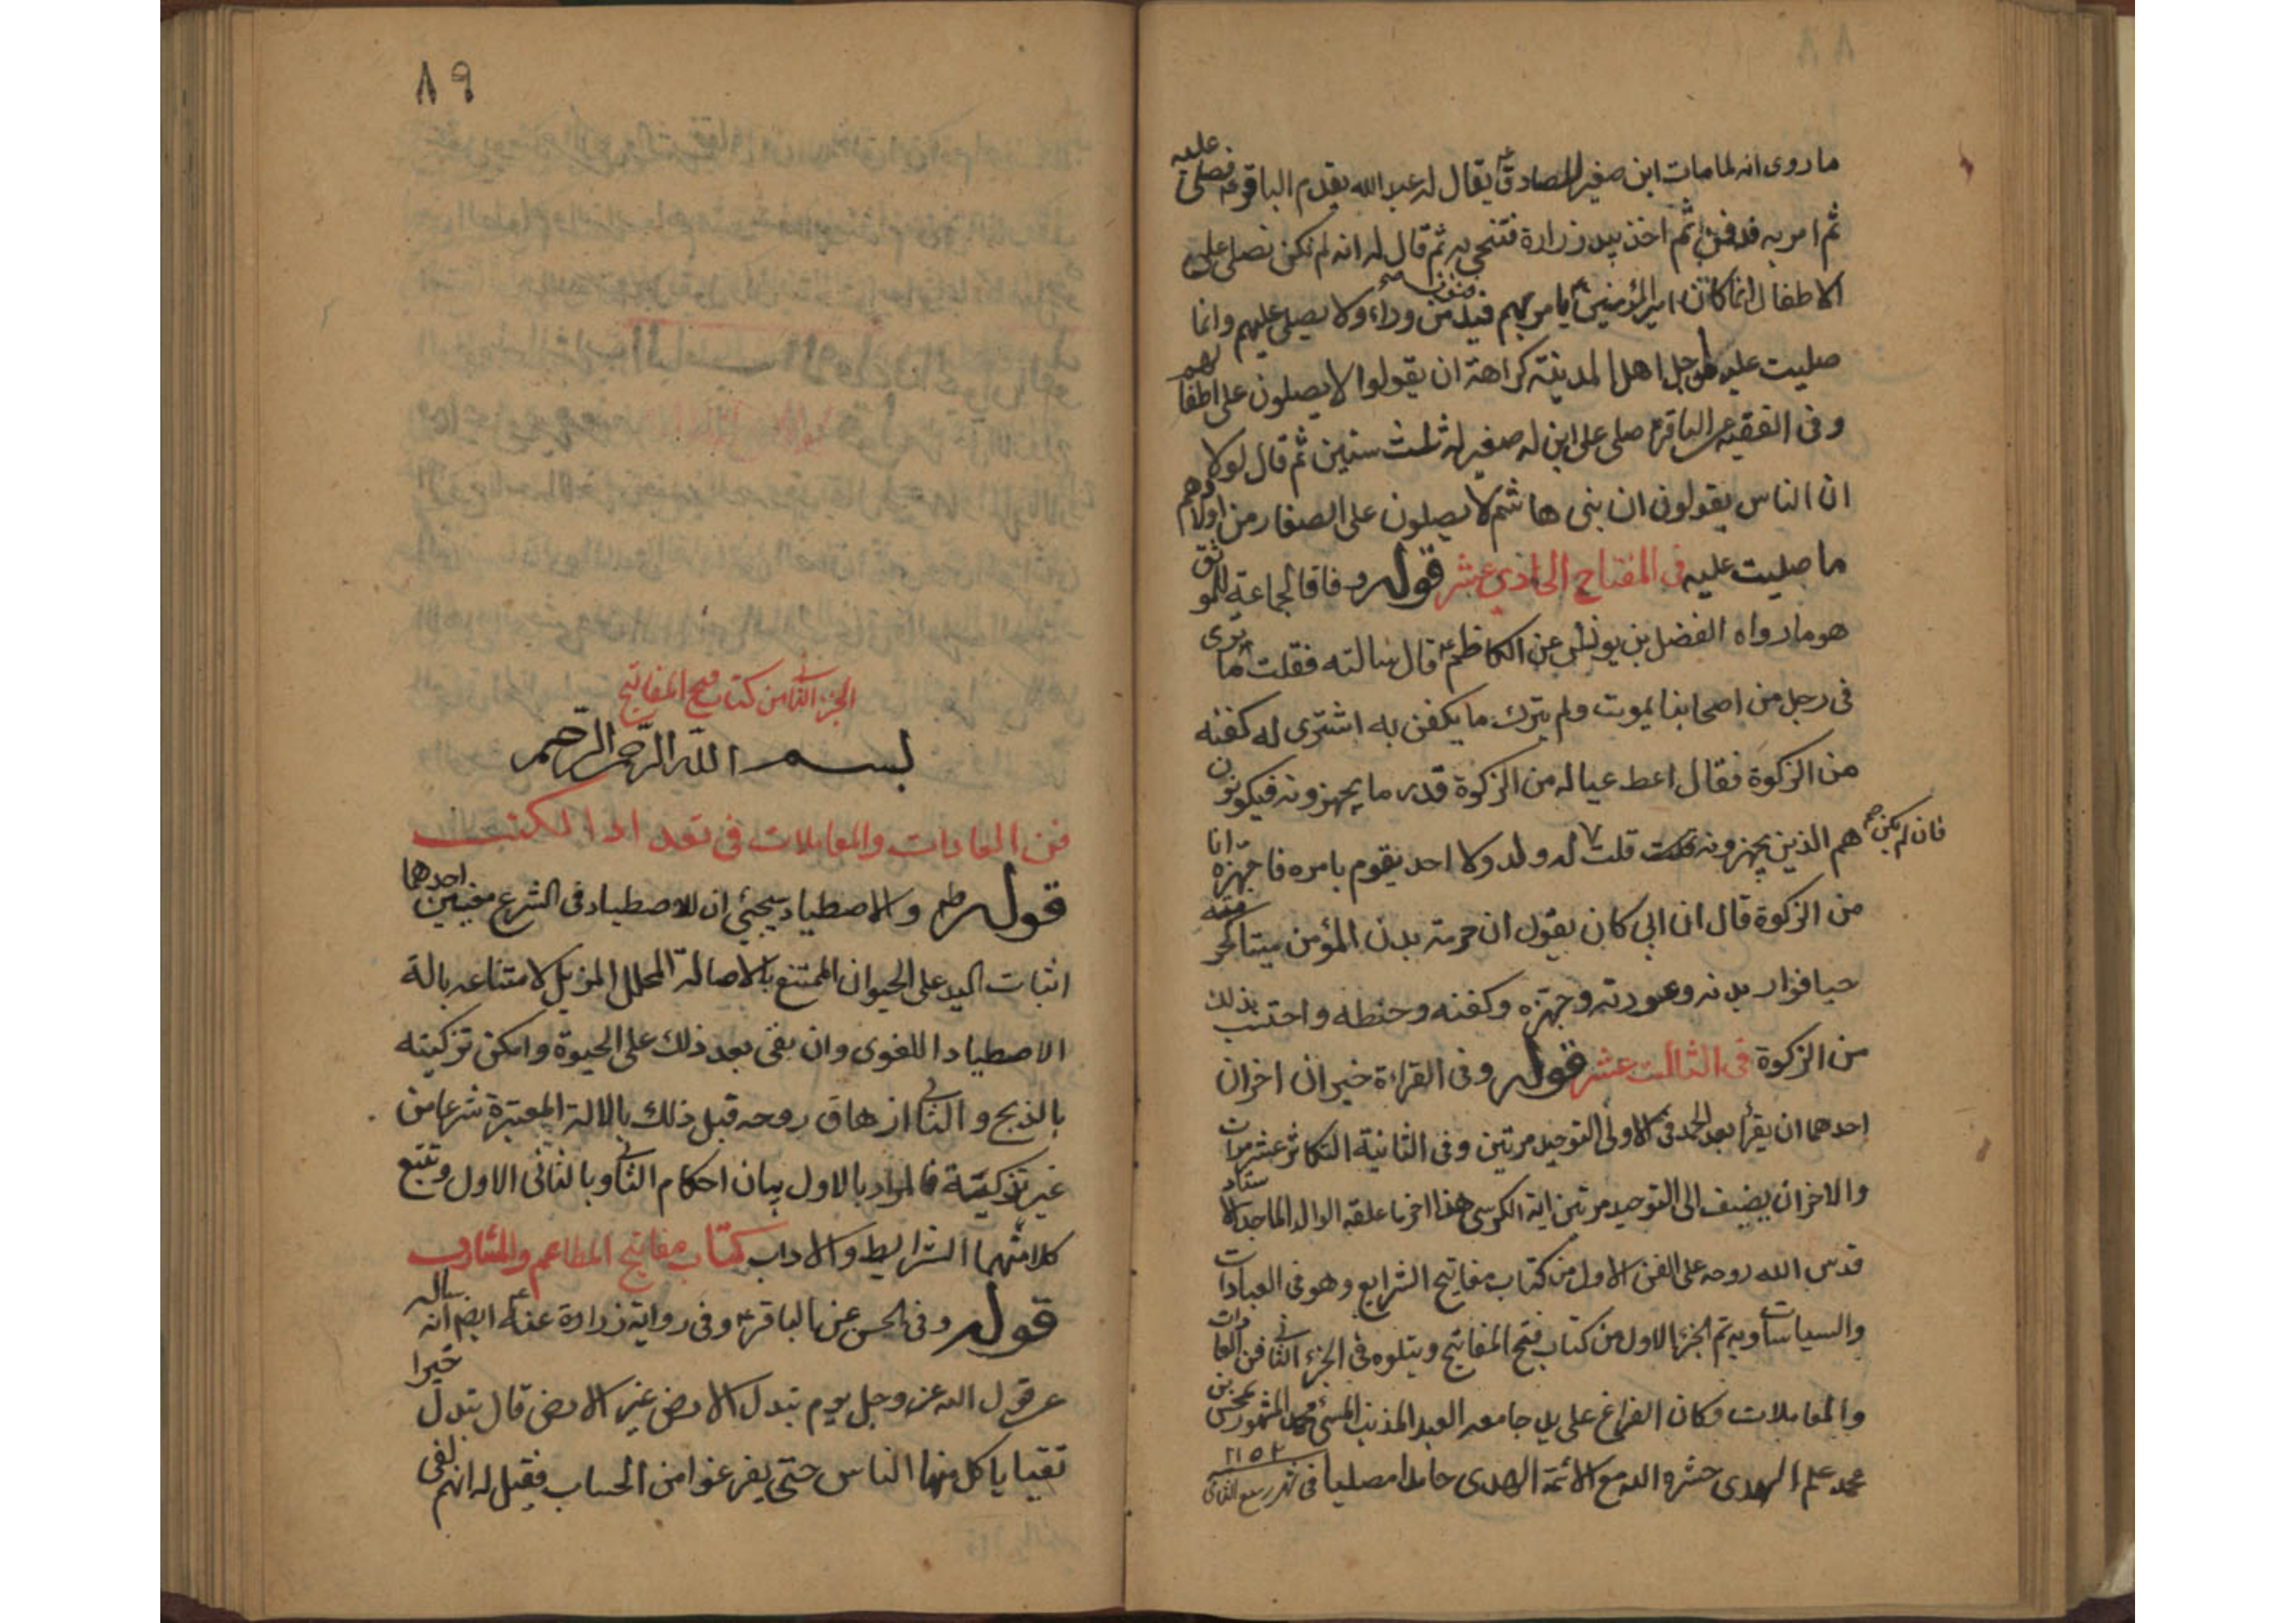 ما روى انه لما مات ابن صغير للصادق ع يقال له عبد الله بقدم الباقر ع فصلى عليه
ثم امر به فدفن ثم اخذ بيد زرارة فتنحى به ثم قال له انه لم يكن يصلى على
الاطفال انما كان امير المؤمنين ع يامر بهم فيدفنون من وراء ولا يصلى عليهم وانما
صليت عليه من اجل اهل المدينة كراهة ان يقولوا لا يصلون على اطفالهم
وفى الفقيه عن الباقر ع صلى على ابن له صغير له ثلث سنين ثم قال لولا
ان الناس يقولون ان بنى هاشم لا يصلون على الصغار من اولادهم
ما صليت عليه فى المفتاح الحادى عشر قوله وفاقا لجماعة للموثق
هو ما رواه الفضل بن يونس عن الكاظم ع قال سالته فقلت ما ترى
فى رجل من اصحابنا يموت ولم يترك ما يكفن به اشترى له كفنه
من الزكوة فقال اعط عياله من الزكوة قدر ما يجهزونه فيكونون
هم الذين يجهزونه قلت فان لم يكن له ولد ولا احد يقوم بامره فاجهزه انا
من الزكوة قال ان ابى كان يقول ان حرمة بدن المؤمن ميتا كحرمته
حيا فوار بدنه وعورته وجهزه وكفنه وحنطه واحتسب بذلك
من الزكوة فى الثالث عشر قوله وفى القراءة خبران اخران
احدهما ان يقرأ بعد الحمد فى الاولى التوحيد مرتين وفى الثانية التكاثر عشر مرات
والاخر ان يضيف الى التوحيد مرتين اية الكرسى هذا اخر ما علقه الوالد الماجد الاستاد
قدس الله روحه على الفن الاول من كتاب مفاتيح الشرايع وهو فى العبادات
والسياسات وبه تم الجزء الاول من كتاب فتح المفاتيح ويتلوه فى الجزء الثانى فن العادات
والمعاملات وكان الفراغ على يد جامعه العبد المذنب المسئ محمد المشهور بمحسن بن
محمد علم الهدى حشره الله مع الائمة الهدى حامدا مصليا فى شهر ربيع الثانى ١١٥٢
٨٩
الجزء الثانى من كتاب فتح المفاتيح
بسم الله الرحمن الرحيم
فن العادات والمعاملات فى تعداد الكتب
قوله طه والاصطياد سيجئ ان للاصطياد فى الشرع معنيين احدهما
اثبات اليد على الحيوان الممتنع بالاصالة المحلل المزيل لامتناعه بالة
الاصطياد اللغوى وان بقى بعد ذلك على الحيوة وامكن تزكيته
بالذبح والثانى ازهاق روحه قبل ذلك بالالة المعتبرة شرعا من
غير تزكية فالمراد بالاول بيان احكام الثانى وبالثانى الاول وتتبع
كلا منهما الشرايط والاداب كتاب مفاتيح المطاعم والمشارب
قوله وفى الحسن عن الباقر ع وفى رواية زرارة عنه ع ايضا انه ساله
عن قول الله عز وجل يوم تبدل الارض غير الارض قال تبدل خبزا
نقيا ياكل منها الناس حتى يفرغوا من الحساب فقيل له انهم لفى